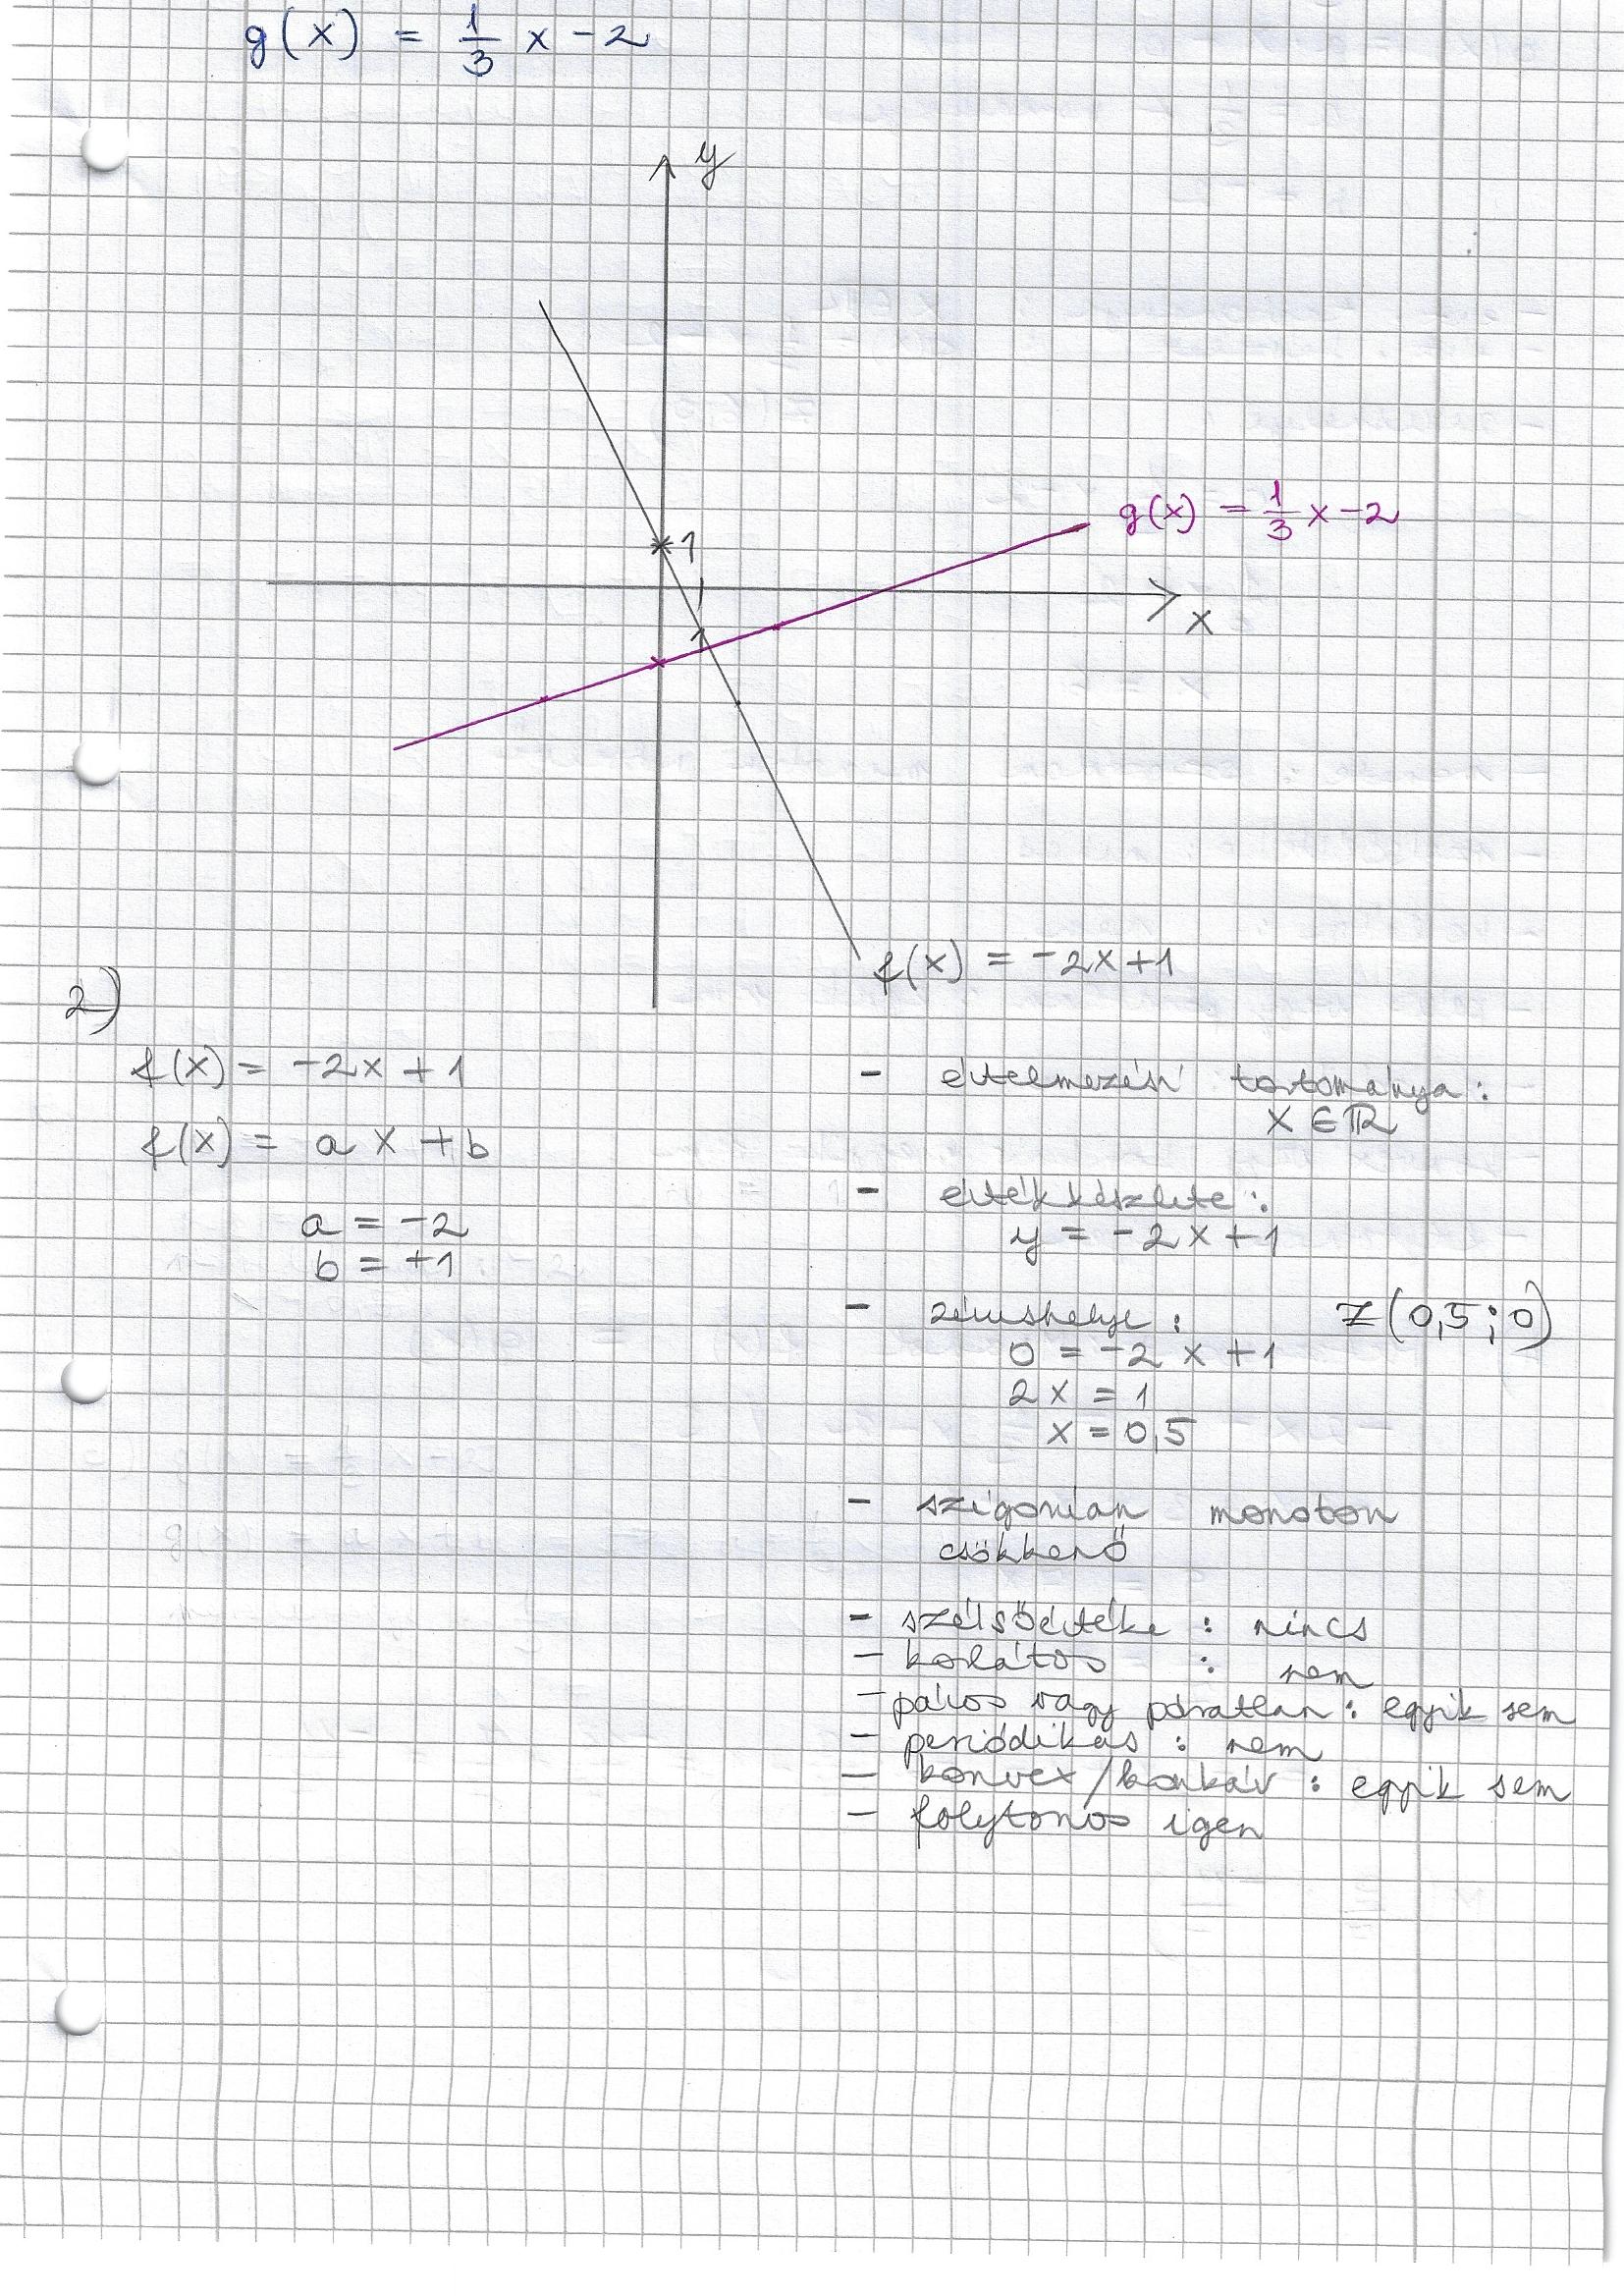 g(x) = 1/3 x - 2
y
1
g(x) = 1/3 x - 2
x
1
f(x) = -2x+1
2)
f(x) = -2x + 1
f(x) = a x + b
a = -2
b = +1
- értelmezési tartománya :
x ∈ ℝ
- értékkészlete :
y = -2x+1
- zérushelye : Z(0,5 ; 0)
0 = -2 x + 1
2x = 1
x = 0,5
- szigorúan monoton
csökkenő
- szélsőértéke : nincs
- korlátos : nem
- páros vagy páratlan : egyik sem
- periódikus : nem
- konvex / konkáv : egyik sem
- folytonos igen